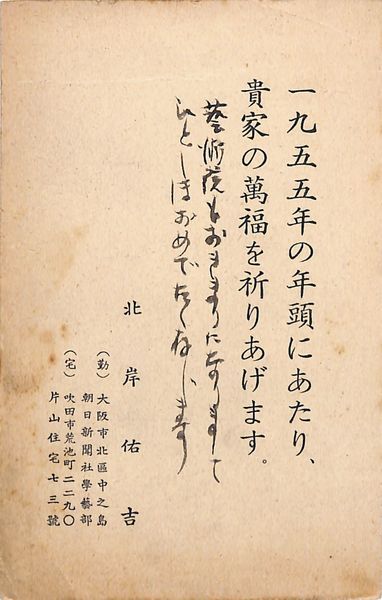 一九五五年の年頭にあたり、
貴家の萬福を祈りあげます。
藝術院もおきまりになりまして
ひとしほおめでたく存じます
北岸佑吉
(勤) 大阪市北區中之島
朝日新聞社學藝部
(宅) 吹田市荒池町二二九〇
片山住宅七三號